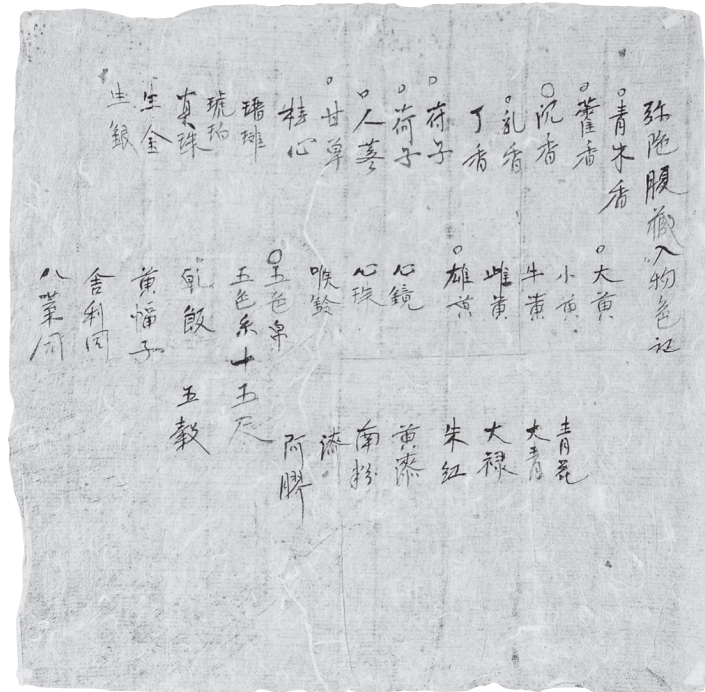 弥陁腹藏入物色記
青木香
藿香
沉香
乳香
丁香
苻子
荷子
人蔘
甘草
桂心
琥珀
真珠
生金
生銀
大黄
小黄
牛黄
雌黄
雄黄
心鏡
心珠
喉鈴
五色帛
五色糸十五尺
乾飯
五穀
黄幅子
舍利同
八葉同
青花
大青
大禄
朱紅
黄漆
南粉
漆
阿膠